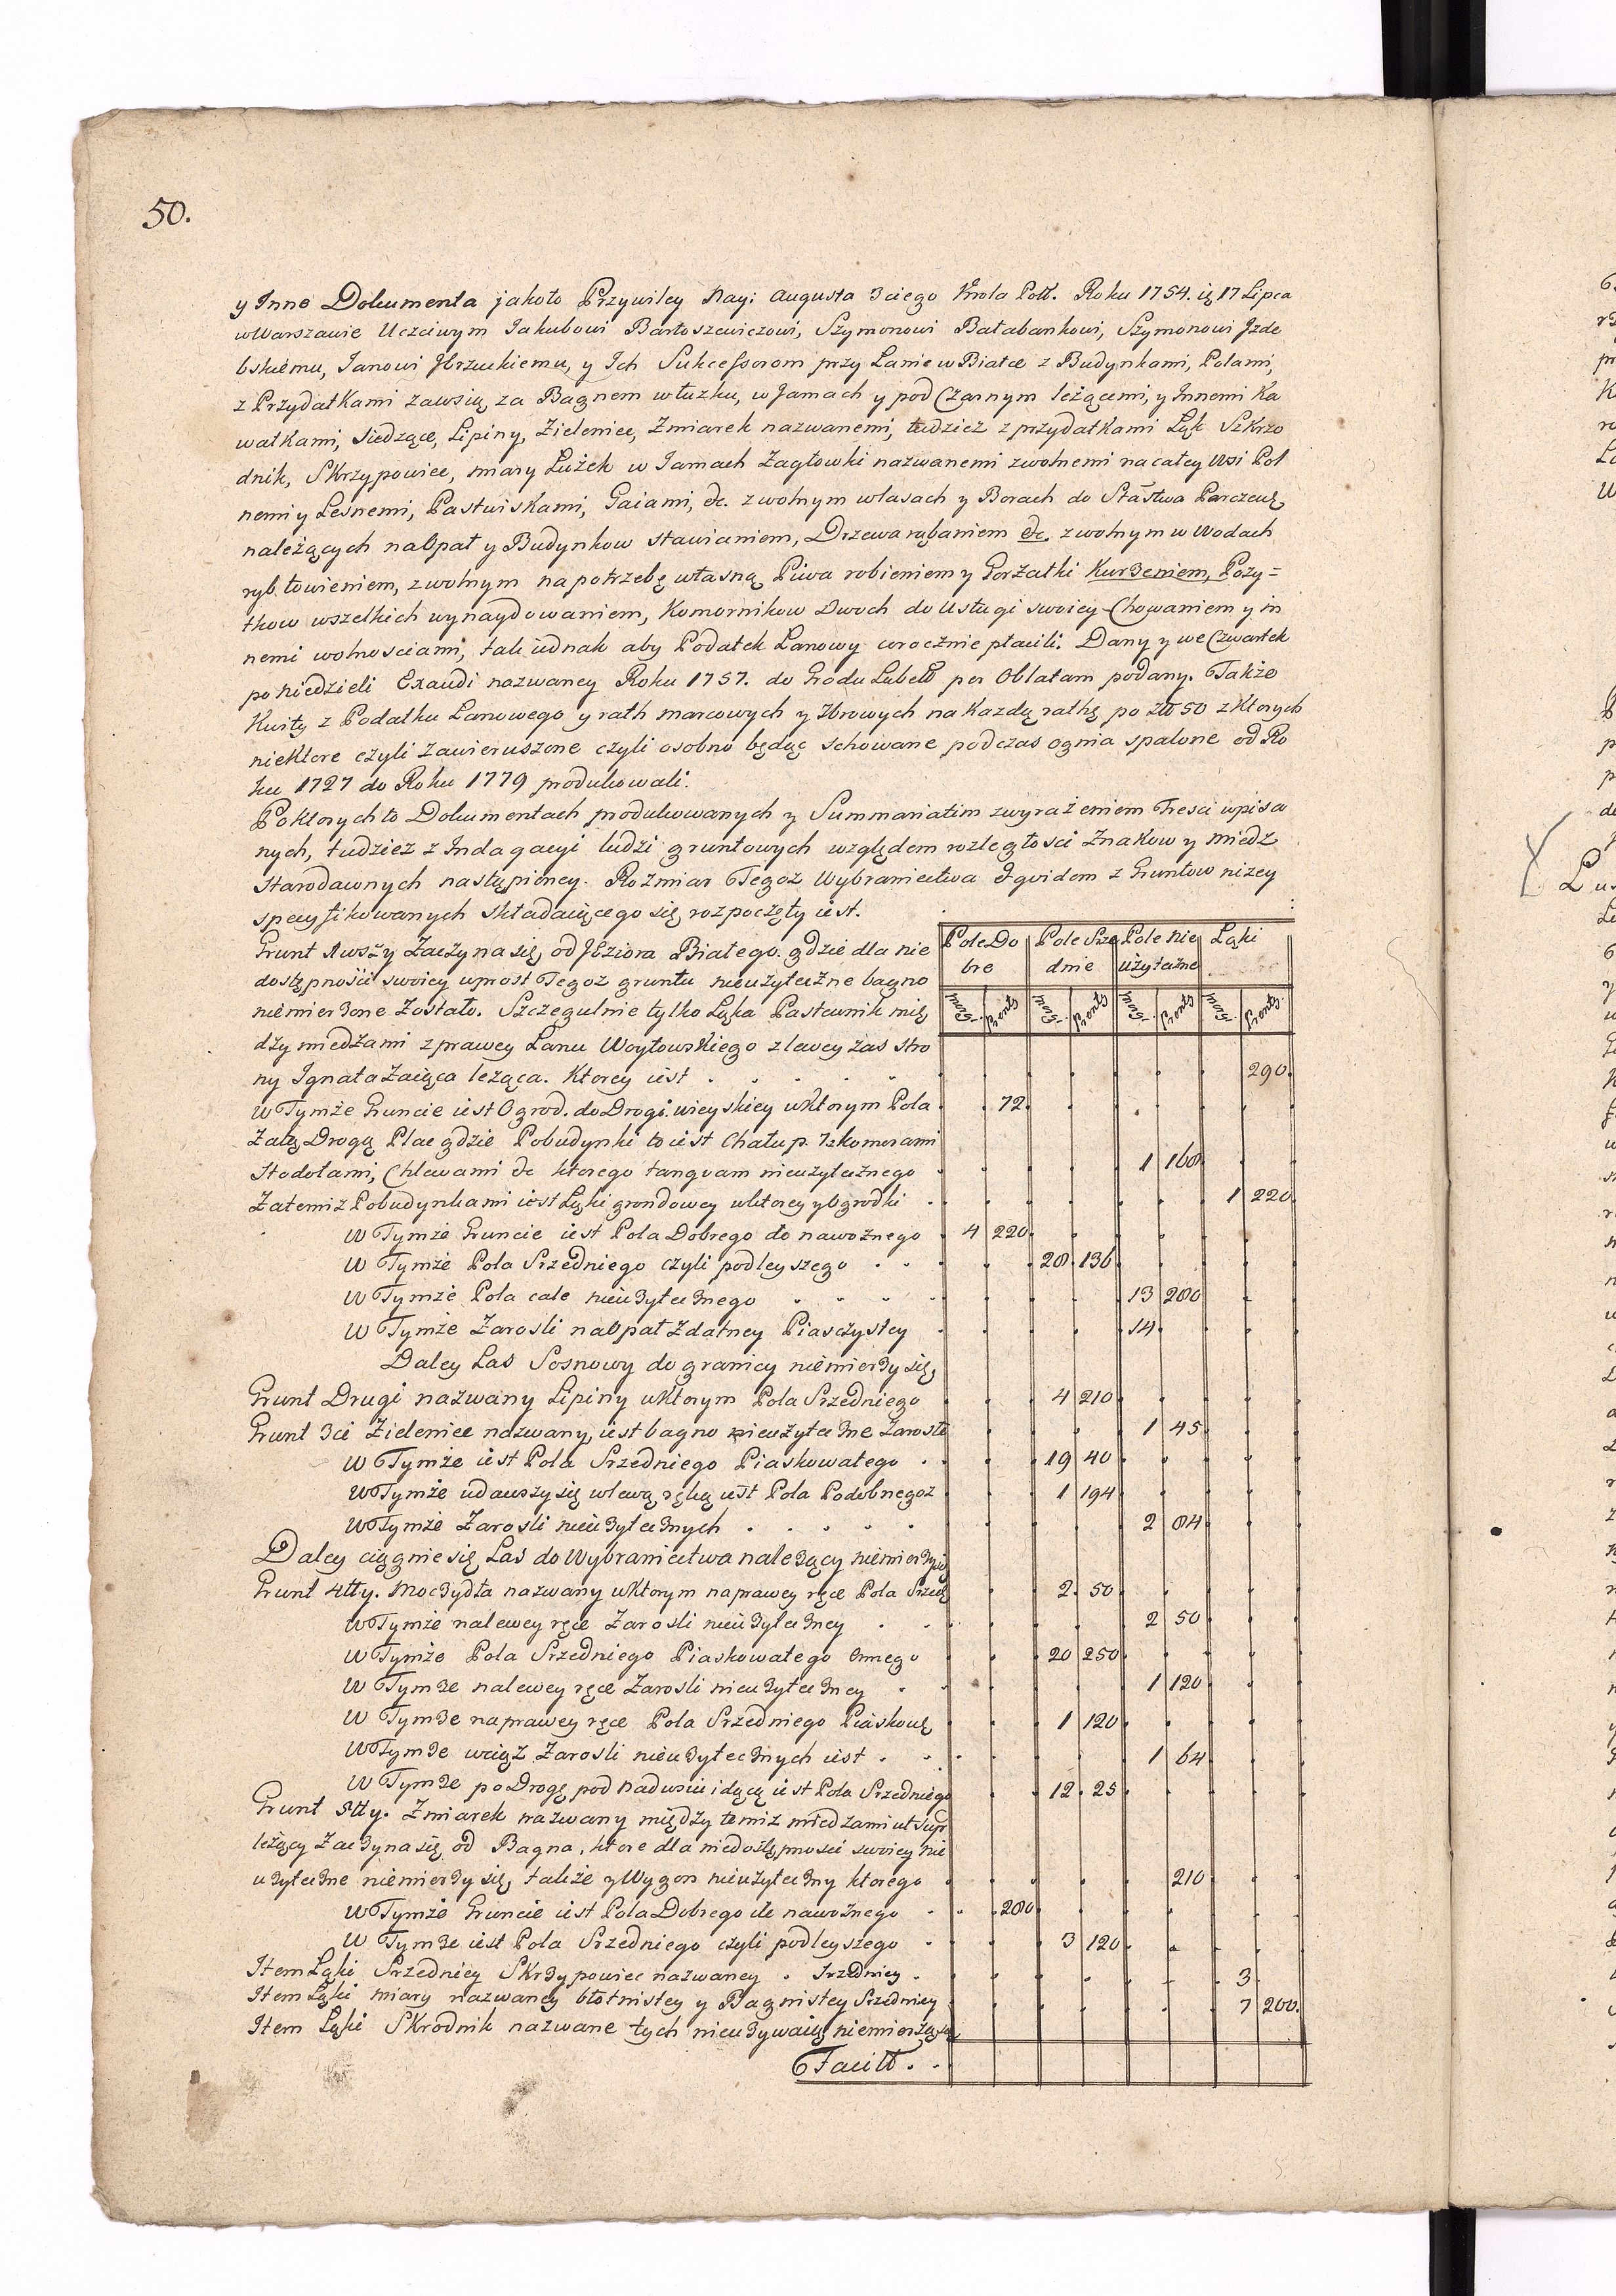 50.
y Inne Dokumenta jakoto Przywiley Nay: Augusta 3ciego Krola Poll. Roku 1754. 17 Lipca
w Warszawie Uczciwym Jakubowi Bartoszewiczowi, Szymonowi Bałabankowi, Szymonowi Jzde
bskiemu, Janowi y Ich Sukcessorom przy Łanie w Białce z Budynkami, Polami,
z Przydatkami zawsią za Bagnem w łuzku, w Jamach y pod Czarnym leżącemi, y Innemi Ka
wałkami, Siedzące, Lipiny, Zieleniec, Zmiarek nazwanemi, tudziez z przydatkami Łąk Szkrzo
dnik, Skrzypowiec, miary Łużek w Jamach Zagłowki nazwanemi zwolnemi nacałey Wsi Pol
nemi y Lesnemi, Pastwiskami, Gaiami, &c. zwolnym w lasach y Borach do Starostwa
należących naOpał y Budynkow stawianiem, Drzewa rąbaniem &c. zwolnym w Wodach
ryb łowieniem, zwolnym napotrzebę własną Piwa robieniem y Gorzałki Kurzeniem, Pozy=
tkow wszelkich wynaydowaniem, Komornikow Dwoch do Usługi swoiey Chowaniem y in
nemi wolnosciami, tak iednak aby Podatek Łanowy corocznie płacili. Dany y we Czwartek
po Niedzieli Exaudi nazwaney Roku 1757. do Grodu Lubell per Oblatam podany. Także
Kwity z Podatku Łanowego y rath marcowych y 7browych na Kazdą rathę po Zll 50 z Ktorych
niektore czyli zawieruszone czyli osobno będąc schowane podczas ognia spalone od Ro
ku 1727 do Roku 1779 produkowali.
Poktorychto Dokumentach produkowanych y Summariatim zwyrażeniem Tresci wpisa
nych, tudziez z Indagacyi ludzi gruntowych względem rozległosci Znakow y miedz
starodawnych nastąpioney. Rozmiar Tegoz Wybraniectwa Eqvidem z Gruntow nizey
specyfikowanych składaiącego się rozpoczęty iest.
Pole Do Pole Srze Pole nie Łąki
bre dnie użyteczne
Morg. Prenty Morg. Prenty Morg. Prenty Morg. Prenty
Grunt 1wszy Zaczyna się od Jeziora Białego. gdzie dla nie
dostępności swoiey wprost Tegoz gruntu nieużyteczne bagno
niemierzone Zostało. Szczegulnie tylko Łąka Pastewnik mię
dzy miedzami z prawey Łanu Woytowskiego z lewey zas stro
ny Ignata Zaiąca leżąca. Ktorey iest . . . . . 290.
w Tymże Gruncie iest Ogrod. do Drogi wieyskiey w ktorym Pola . 72.
Zatą Drogą Plac gdzie Pobudynki to iest Chałup. 7 z komorami
Stodołami, Chlewami &c ktorego tanquam nieużytecznego 1 160
Zatemiz Pobudynkami iest Łąki grondowey w ktorey y Ogrodki . 1 220
W Tymże Gruncie iest Pola Dobrego do nawoznego 4 220
W Tymże Pola Srzedniego czyli podleyszego . . 20 136
W Tymże Pola całe nieużytecznego . . . 13 200
W Tymże Zarosli naOpał Zdatney Piasczystey 14
Daley Las Sosnowy do granicy niemierzy się
Grunt Drugi nazwany Lipiny w ktorym Pola Srzedniego 4 210
Grunt 3ci Zieleniec nazwany, iest bagno nieużyteczne Zarosłe 1 45
W Tymże iest Pola Srzedniego Piaskowatego . 19 40
W Tymże udawszy się w lewą rękę iest Pola Podobnegoz 1 194
W Tymże Zarosli nieużytecznych . . . . 2 84
Daley ciągnie się Las do Wybraniectwa należący niemierzy się
Grunt 4tty. Moczydła nazwany w ktorym na prawey ręce Pola Srzed. 2 50
W Tymże na lewey ręce Zarosli nieużyteczney . 2 50
W Tymże Pola Srzedniego Piaskowatego Innego 20 250
W Tymże na lewey ręce Zarosli nieużyteczney . 1 120
W Tymże na prawey ręce Pola Srzedniego Piaskowę 1 120
W Tymże wciąż Zarosli nieużytecznych iest . . 1 64
W Tymże po Drogę pod Nadwsie idącą iest Pola Srzedniego 12 25
Grunt 5tty. Zmiarek nazwany między temiz miedzami ut supr
leżący Zaczyna się od Bagna, ktore dla niedostępnosci swoiey nie
użyteczne niemierzy się, takze y Wygon nieużyteczny ktorego 210
W Tymże Gruncie iest Pola Dobrego ile nawoznego . 200
W Tymże iest Pola Srzedniego czyli podleyszego . 3 120
Item Łąki Srzedniey Skrzypowiec nazwaney . Srzedniey . 3
Item Łąki miary nazwaney błotnistey y Bagnistey Srzedniey 7 200.
Item Łąki Skrodnik nazwane tych nieużywaią niemierzą się
Facitt . .